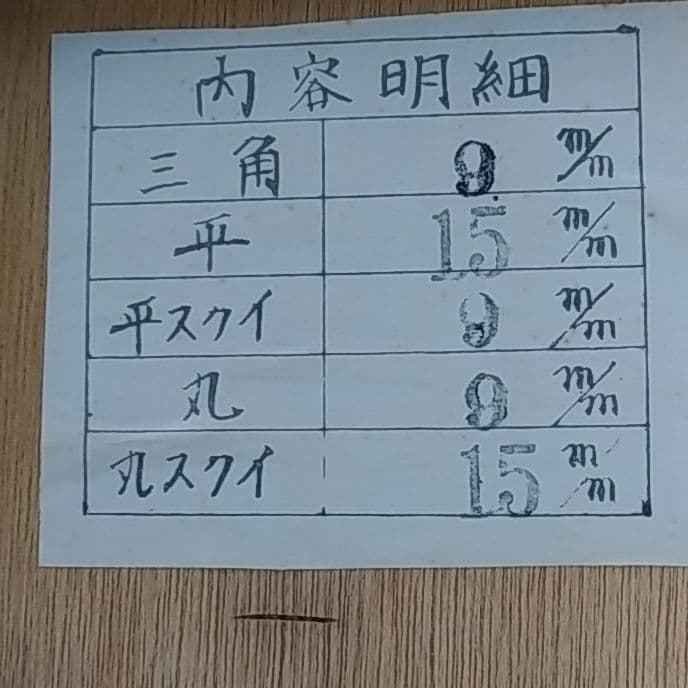 内容明細
三角 9 m/m
平 15 m/m
平スクイ 9 m/m
丸 9 m/m
丸スクイ 15 m/m